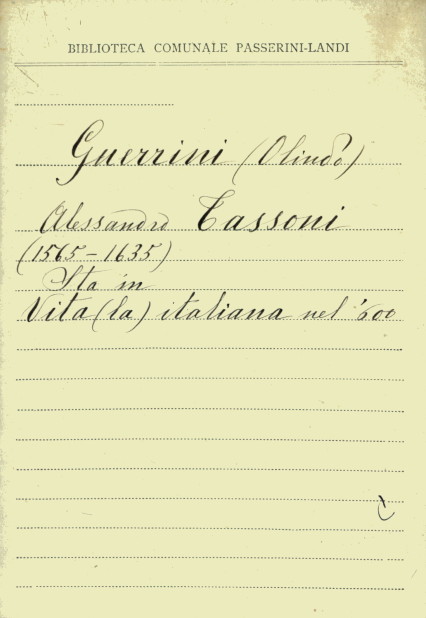 BIBLIOTECA COMUNALE PASSERINI-LANDI
Guerrini (Olindo)
Alessandro Tassoni
(1565-1635)
Sta in
Vita (la) italiana nel '600